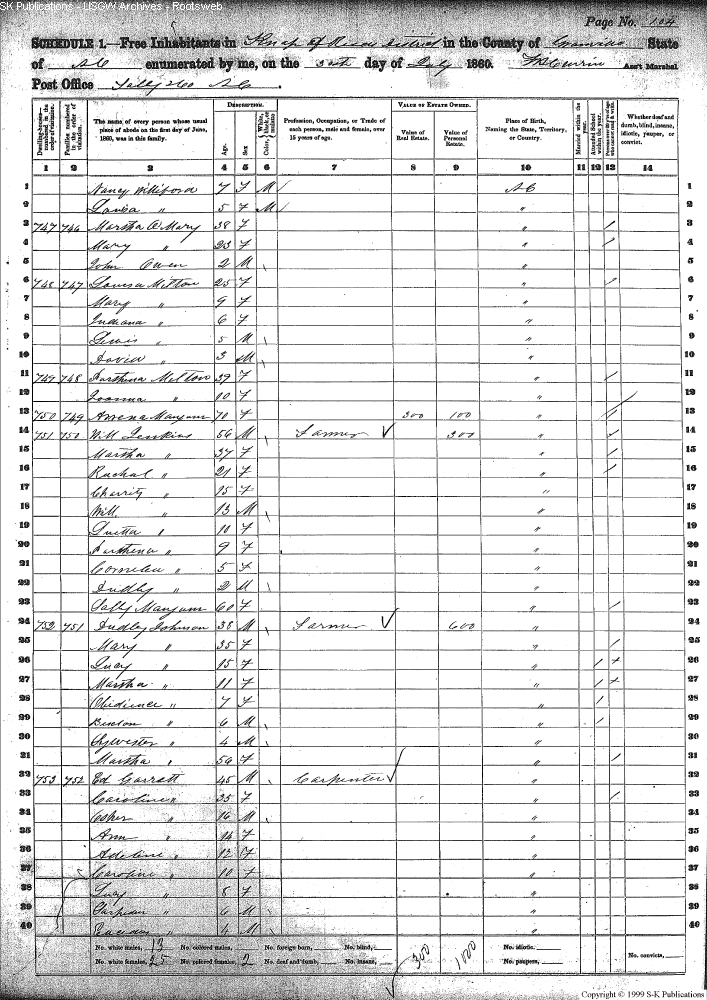 SK Publications - USGW Archives - Rootsweb
Page No. 104
SCHEDULE 1.—Free Inhabitants in Knap of Reeds District in the County of Granville State
of NC enumerated by me, on the day of July 1860. Ass't Marshal
Post Office Tally Ho NC.
Dwelling-houses numbered in the order of visitation. Families numbered in the order of visitation. The name of every person whose usual place of abode on the first day of June, 1860, was in this family. DESCRIPTION. Age. Sex. Color, White, black, or mulatto. Profession, Occupation, or Trade of each person, male and female, over 15 years of age. VALUE OF ESTATE OWNED. Value of Real Estate. Value of Personal Estate. Place of Birth, Naming the State, Territory, or Country. Married within the year. Attended School within the year. Persons over 20 y'rs of age who cannot read & write. Whether deaf and dumb, blind, insane, idiotic, pauper, or convict.
1 2 3 4 5 6 7 8 9 10 11 12 13 14
1 Nancy Williford 7 F M / NC 1
2 Louisa " 5 F M / " 2
3 747 746 Martha A Mary 38 F " / 3
4 Mary " 23 F " / 4
5 John Owen 2 M " 5
6 748 747 Louisa Melton 25 F " / 6
7 Mary " 9 F " 7
8 Indiana " 6 F " 8
9 Lewis " 5 M " 9
10 David " 3 M " 10
11 749 748 Parthena Melton 39 F " / 11
12 Joanna " 10 F " 12
13 750 749 Mangum 70 F 300 100 " / 13
14 751 750 Will Jenkins 56 M Farmer 300 " / 14
15 Martha " 37 F " / 15
16 Rachal " 21 F " / 16
17 Charity " 15 F " 17
18 Will " 13 M " 18
19 " 10 F " 19
20 Parthena " 9 F " 20
21 Cornelia " 5 F " 21
22 Dudly " 2 M " 22
23 Sally Mangum 60 F " / 23
24 752 751 Dudley Johnson 38 M Farmer 600 " 24
25 Mary " 35 F " / 25
26 Lucy " 15 F " / + 26
27 Martha " 11 F " / + 27
28 Obidience " 7 F " / 28
29 Buxton " 6 M " / 29
30 Sylvester " 4 M " 30
31 Martha " 59 F " / 31
32 753 752 Ed Garrett 45 M Carpenter " 32
33 Caroline " 35 F " / 33
34 " 16 M " 34
35 Ann " 14 F " 35
36 Adeline " 12 F " 36
37 Caroline " 10 F " 37
38 Lucy " 8 F " 38
39 " 6 M " 39
40 " 4 M " 40
No. white males, 13 No. colored males, No. foreign born, No. blind, 300 1000 No. idiotic, No. convicts,
No. white females, 25 No. colored females, 2 No. deaf and dumb, No. insane, No. paupers,
Copyright © 1999 S-K Publications